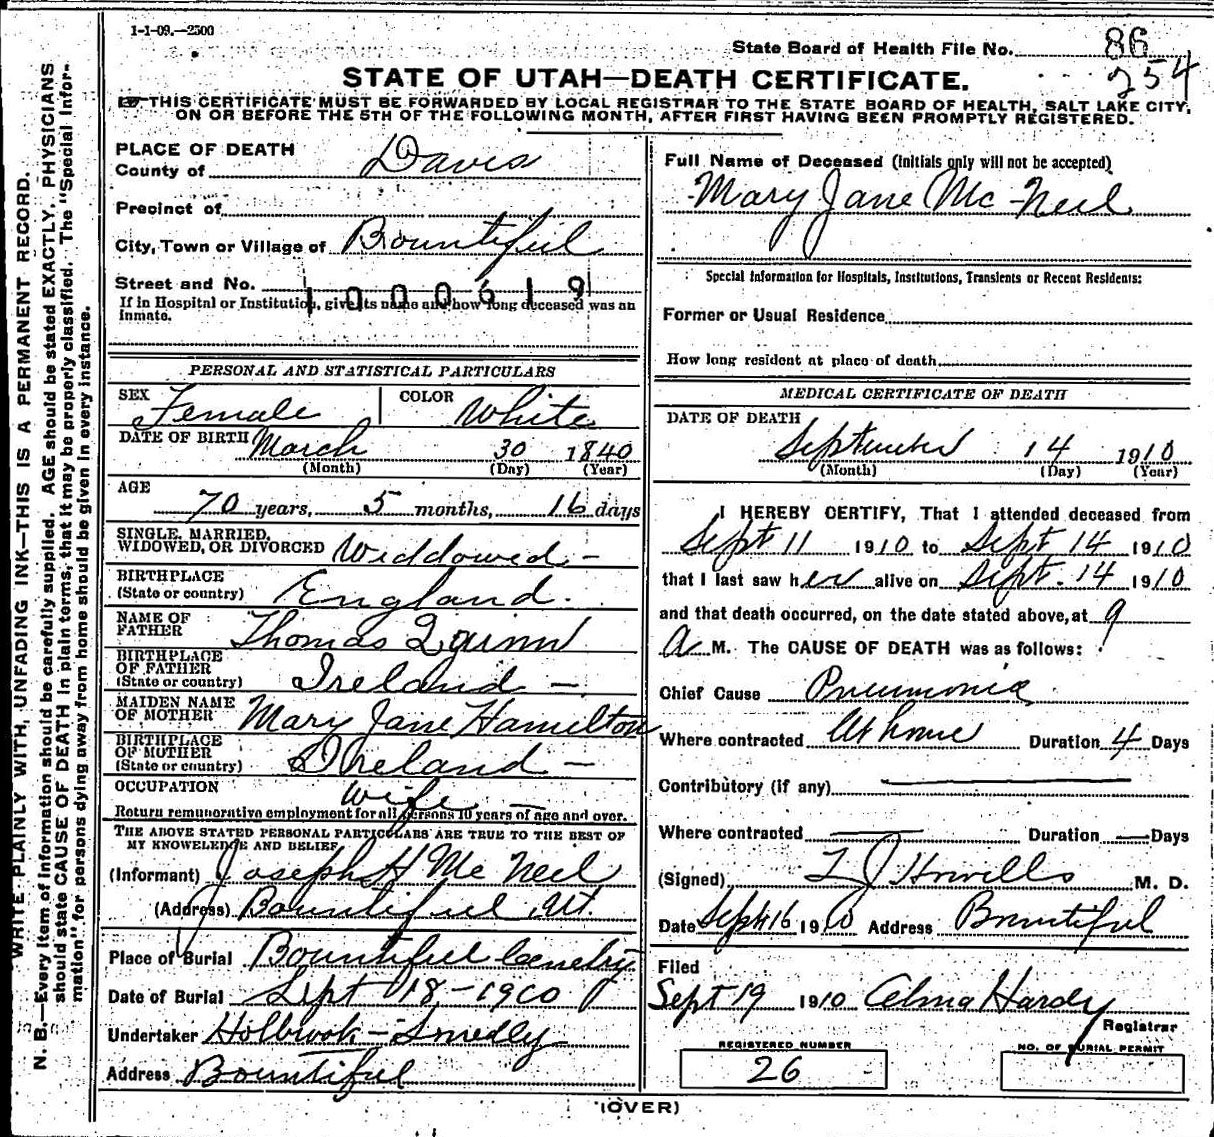 1-1-09.—2500
State Board of Health File No. 86
254
STATE OF UTAH—DEATH CERTIFICATE.
THIS CERTIFICATE MUST BE FORWARDED BY LOCAL REGISTRAR TO THE STATE BOARD OF HEALTH, SALT LAKE CITY,
ON OR BEFORE THE 5TH OF THE FOLLOWING MONTH, AFTER FIRST HAVING BEEN PROMPTLY REGISTERED.
WRITE PLAINLY WITH UNFADING INK—THIS IS A PERMANENT RECORD.
N. B.—Every item of information should be carefully supplied. AGE should be stated EXACTLY, PHYSICIANS
should state CAUSE OF DEATH in plain terms, that it may be properly classified. The "Special Infor-
mation" for persons dying away from home should be given in every instance.
PLACE OF DEATH
County of Davis
Precinct of
City, Town or Village of Bountiful
Street and No.
1000619
If in Hospital or Institution, give its name and how long deceased was an
inmate.
PERSONAL AND STATISTICAL PARTICULARS
SEX Female COLOR White
DATE OF BIRTH March 30 1840
(Month) (Day) (Year)
AGE
70 years, 5 months, 16 days
SINGLE, MARRIED,
WIDOWED, OR DIVORCED Widdowed -
BIRTHPLACE
(State or country) England.
NAME OF
FATHER Thomas Quinn
BIRTHPLACE
OF FATHER
(State or country) Ireland -
MAIDEN NAME
OF MOTHER Mary Jane Hamilton
BIRTHPLACE
OF MOTHER
(State or country) Ireland -
OCCUPATION
Wife -
Return remunerative employment for all persons 10 years of age and over.
THE ABOVE STATED PERSONAL PARTICULARS ARE TRUE TO THE BEST OF
MY KNOWELEDGE AND BELIEF
(Informant) Joseph H Mc Neil
(Address) Bountiful Ut.
Place of Burial Bountiful Cemetry
Date of Burial Sept 18 - 1910
Undertaker Holbrook - Smedly
Address Bountiful
Full Name of Deceased (Initials only will not be accepted)
Mary Jane Mc Neil
Special Information for Hospitals, Institutions, Transients or Recent Residents:
Former or Usual Residence
How long resident at place of death
MEDICAL CERTIFICATE OF DEATH
DATE OF DEATH
September 14 1910
(Month) (Day) (Year)
I HEREBY CERTIFY, That I attended deceased from
Sept 11 1910 to Sept 14 1910
that I last saw her alive on Sept. 14 1910
and that death occurred, on the date stated above, at 9
A M. The CAUSE OF DEATH was as follows:
Chief Cause Pneumonia
Where contracted At home Duration 4 Days
Contributory (if any)
Where contracted Duration — Days
(Signed) L J Howells M. D.
Date Sept 16 1910 Address Bountiful
Filed
Sept 19 1910 Alma Hardy
Registrar
REGISTERED NUMBER
26
NO. OF BURIAL PERMIT
(OVER)